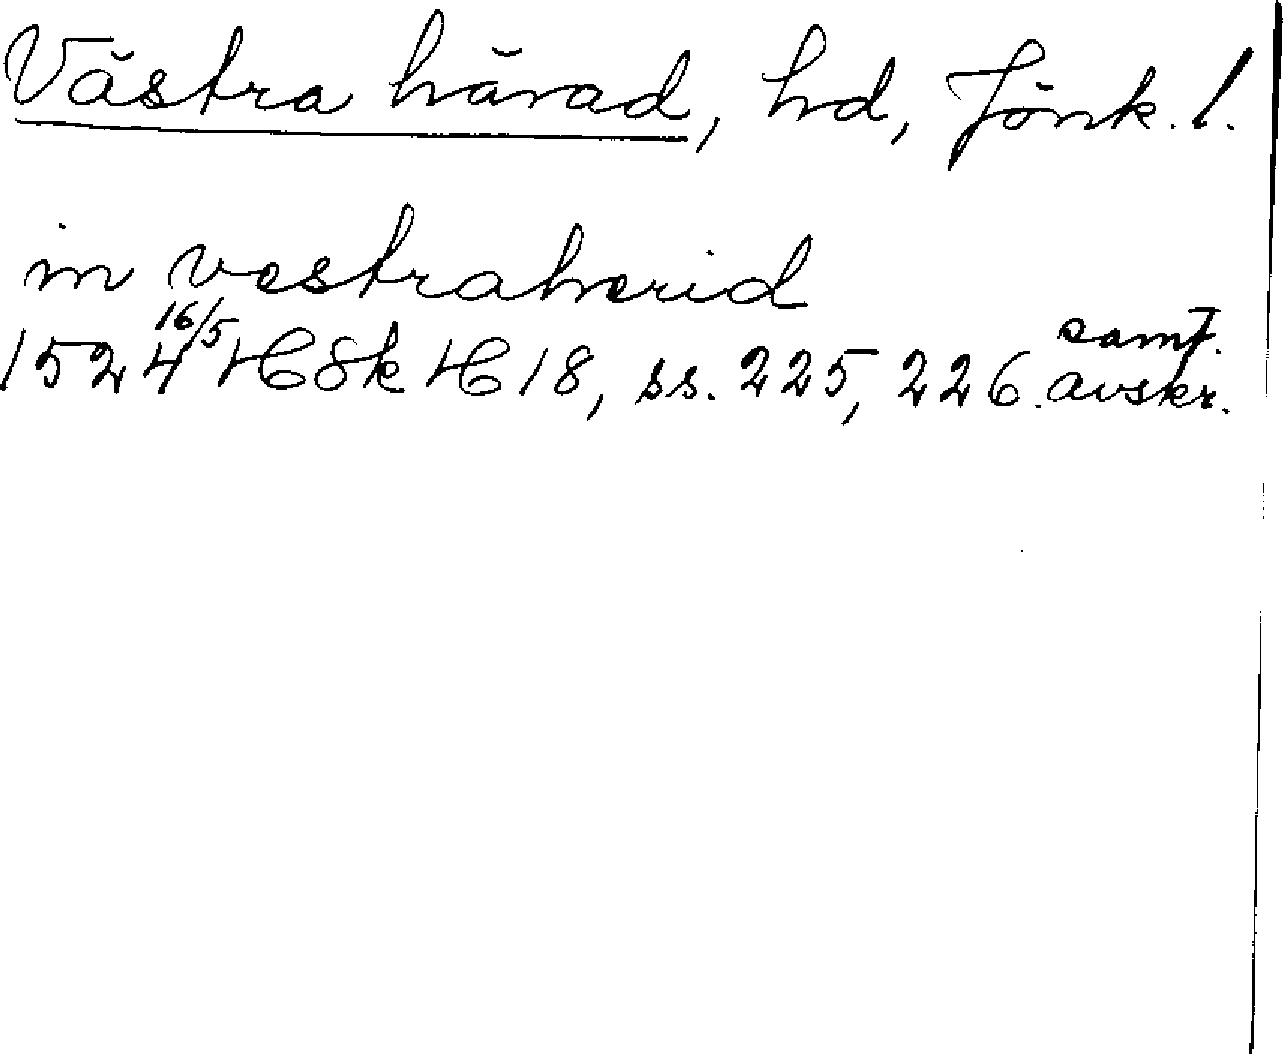 Västra härad, hd, Jönk. l.
in vestraherid
1524 16/5 HSk H 18, ss. 225, 226. samt. avskr.